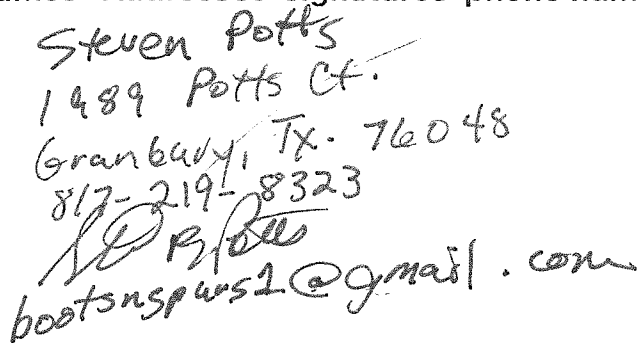 Steven Potts
1989 Potts Ct.
Granbury, Tx. 76048
817-219-8323
Potts
bootsnspurs1@gmail.com